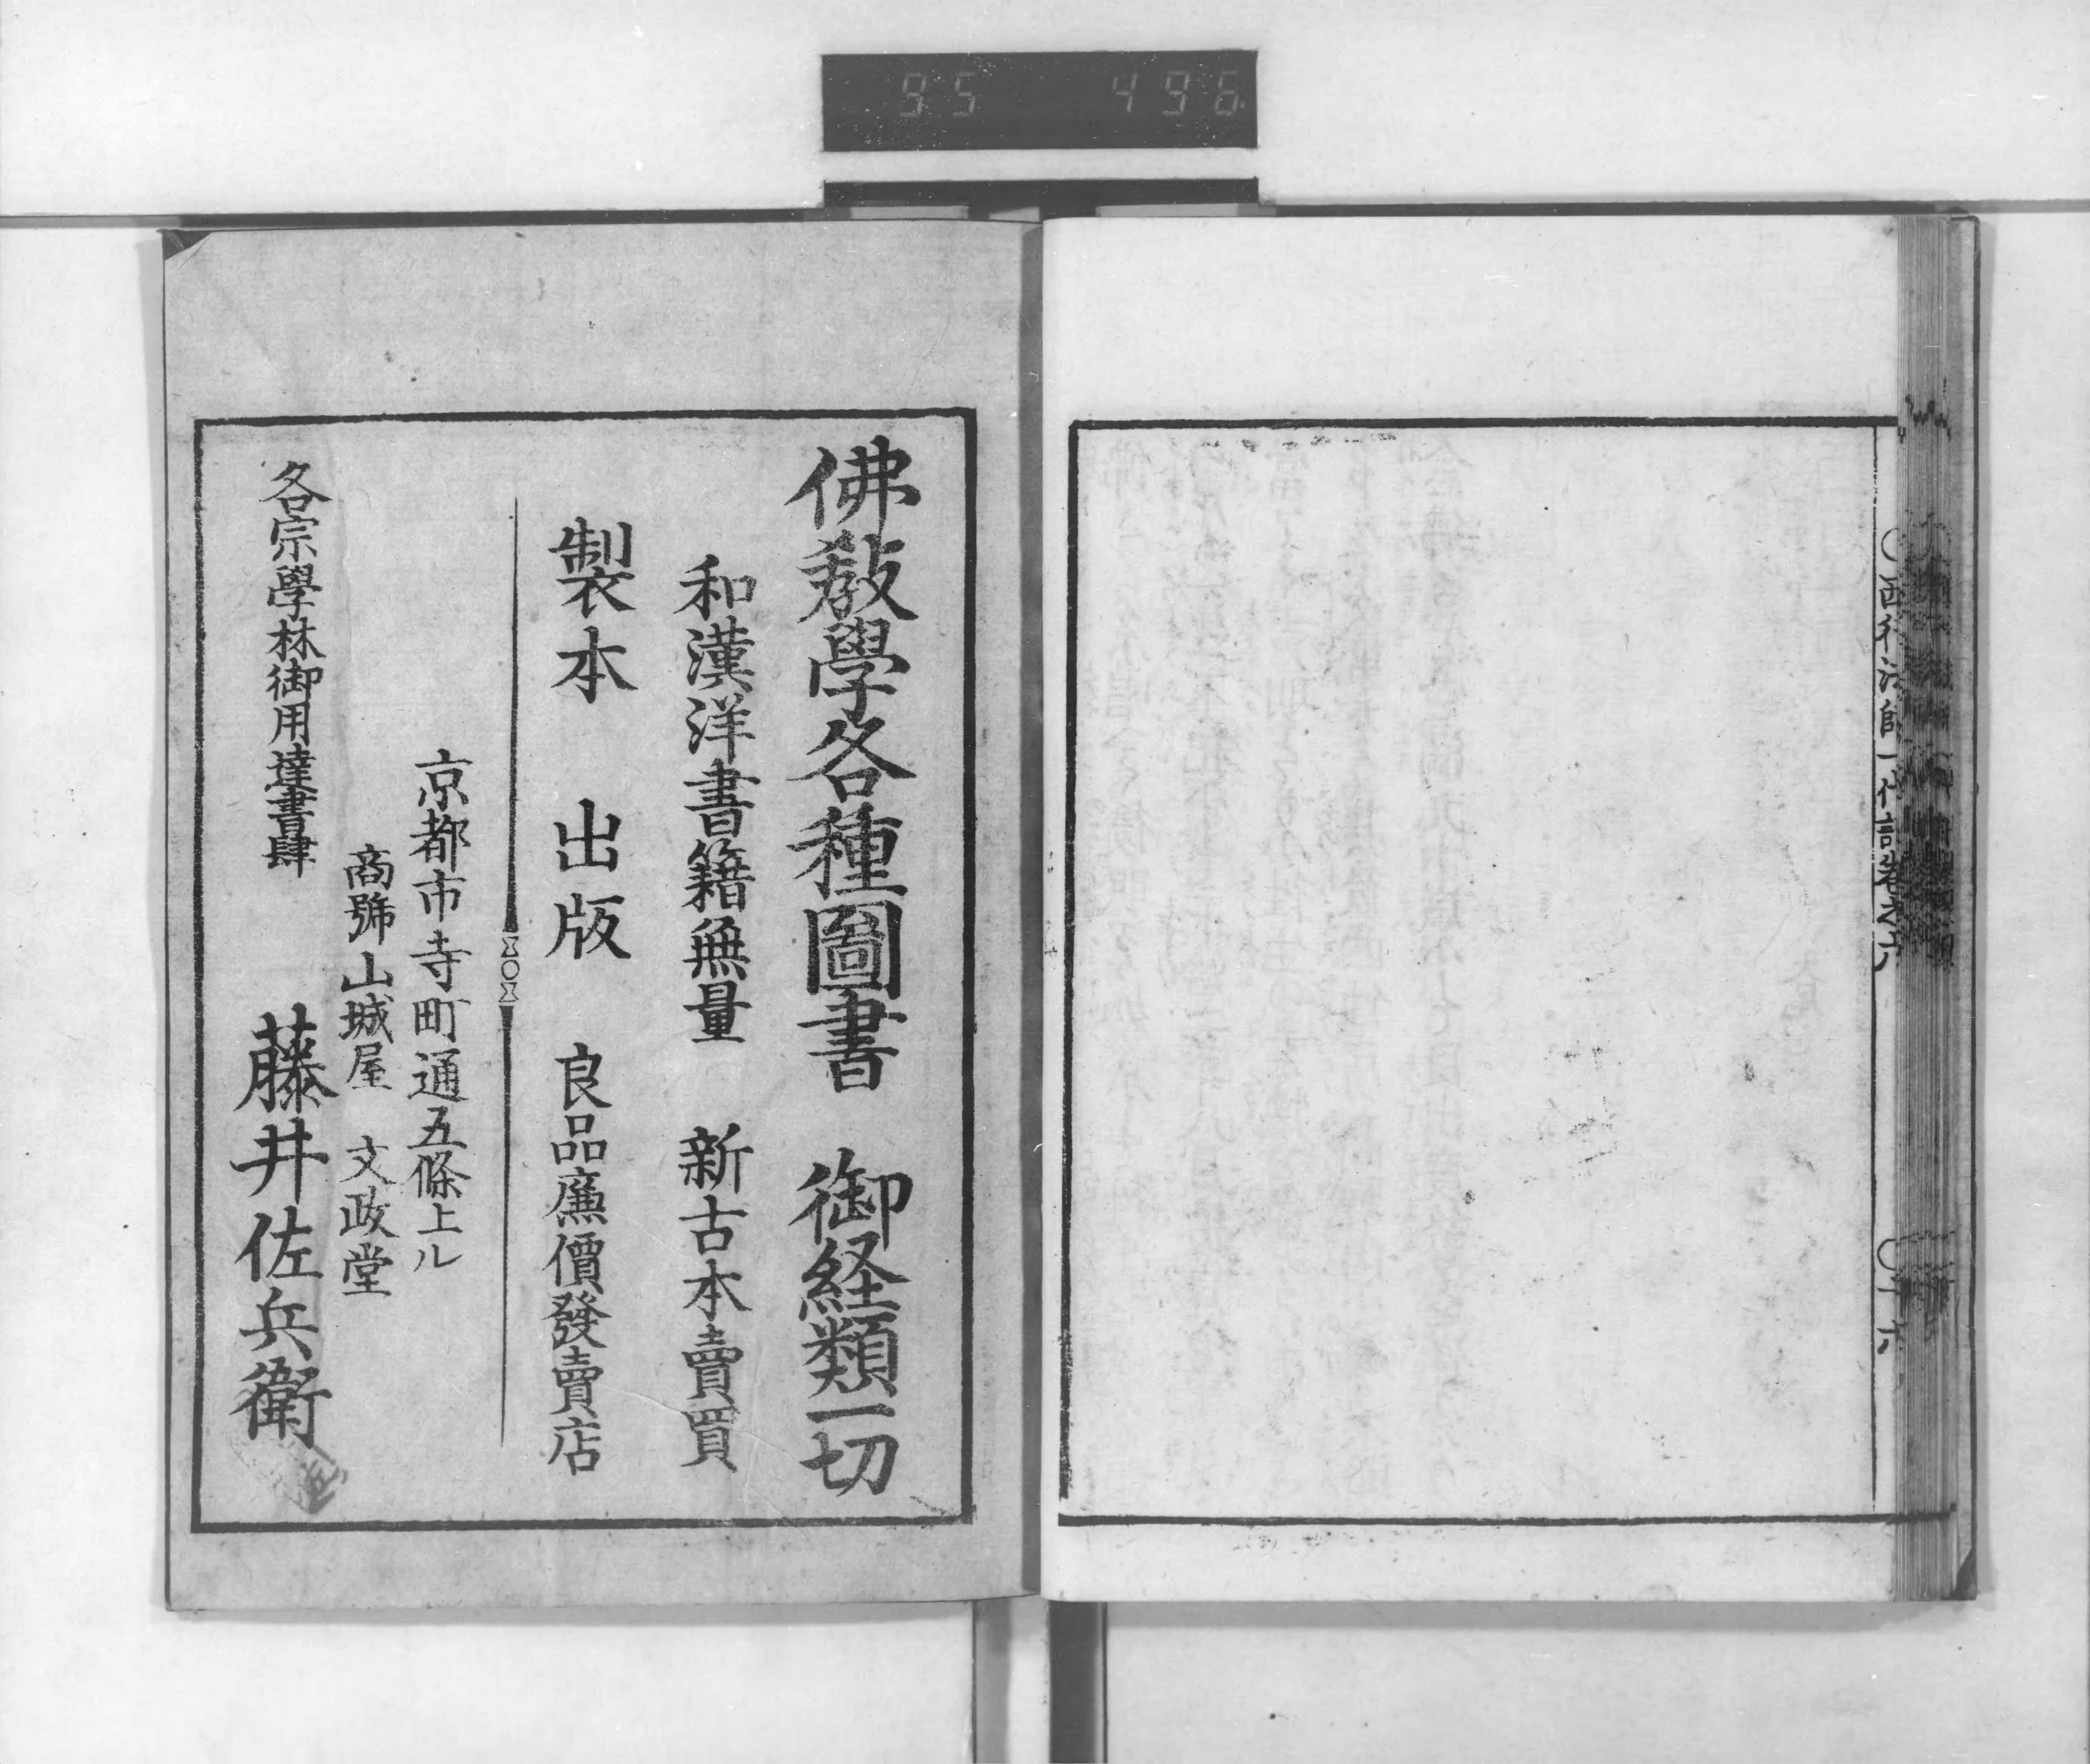 95 496
○西行法師一代記卷之六
○十六
佛敎學各種圖書　御経類一切
和漢洋書籍無量　新古本賣買
製本　出版　良品廉價發賣店
京都市寺町通五條上ル
商號山城屋　文政堂
各宗學林御用達書肆　藤井佐兵衛